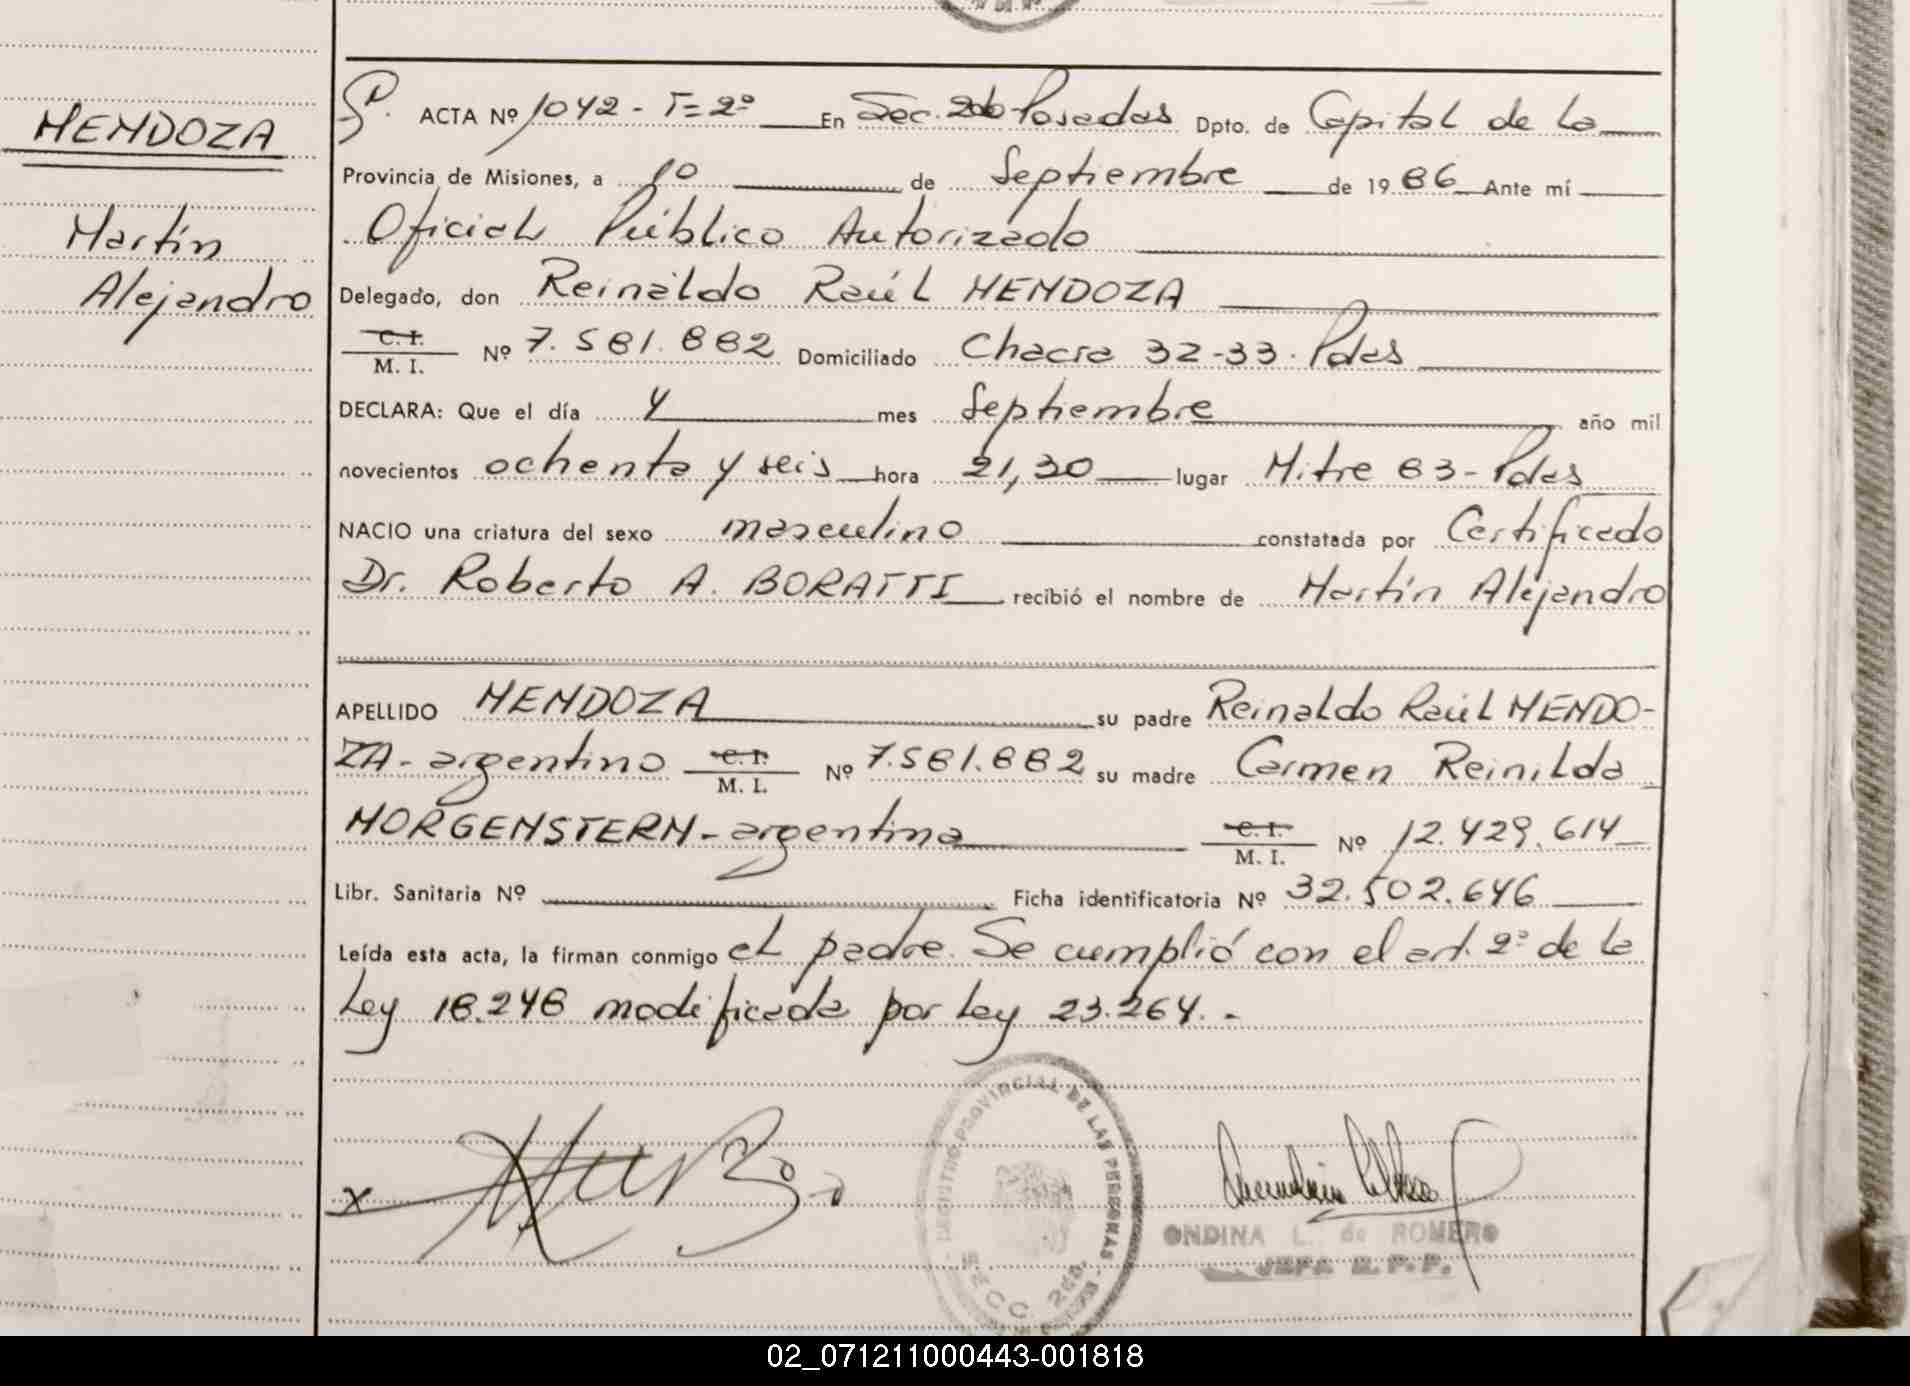 MENDOZA
Martín
Alejandro
ACTA Nº 1042 - T=2º En Sec. 2da Posadas Dpto. de Capital de la
Provincia de Misiones, a 10 de Septiembre de 1986 Ante mí
Oficial Público Autorizado
Delegado, don Reinaldo Raúl MENDOZA
C. I.
M. I. Nº 7.581.882 Domiciliado Chacra 32-33. Pdas
DECLARA: Que el día 4 mes Septiembre año mil
novecientos ochenta y seis hora 21,30 lugar Mitre 83 - Pdas
NACIO una criatura del sexo masculino constatada por Certificado
Dr. Roberto A. BORATTI recibió el nombre de Martín Alejandro
APELLIDO MENDOZA su padre Reinaldo Raúl MENDO-
ZA - argentino C. I. M. I. Nº 7.581.882 su madre Carmen Reinilda
MORGENSTERN - argentina C. I. M. I. Nº 12.429.614
Libr. Sanitaria Nº Ficha identificatoria Nº 32.502.646
Leída esta acta, la firman conmigo el padre. Se cumplió con el art. 2º de la
Ley 18.248 modificada por Ley 23.264. -
x
REGISTRO PROVINCIAL DE LAS PERSONAS
SECC. 2da.
ONDINA L. de ROMERO
JEFA R. P. P.
02_071211000443-001818